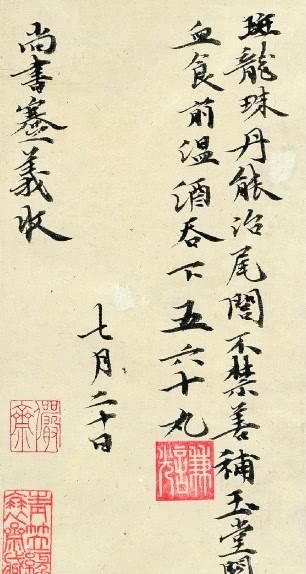 斑龍珠丹能治尾閭不禁善補玉堂
血食前溫酒吞下五六十丸
七月二十日
尚書蹇義收
儼齋